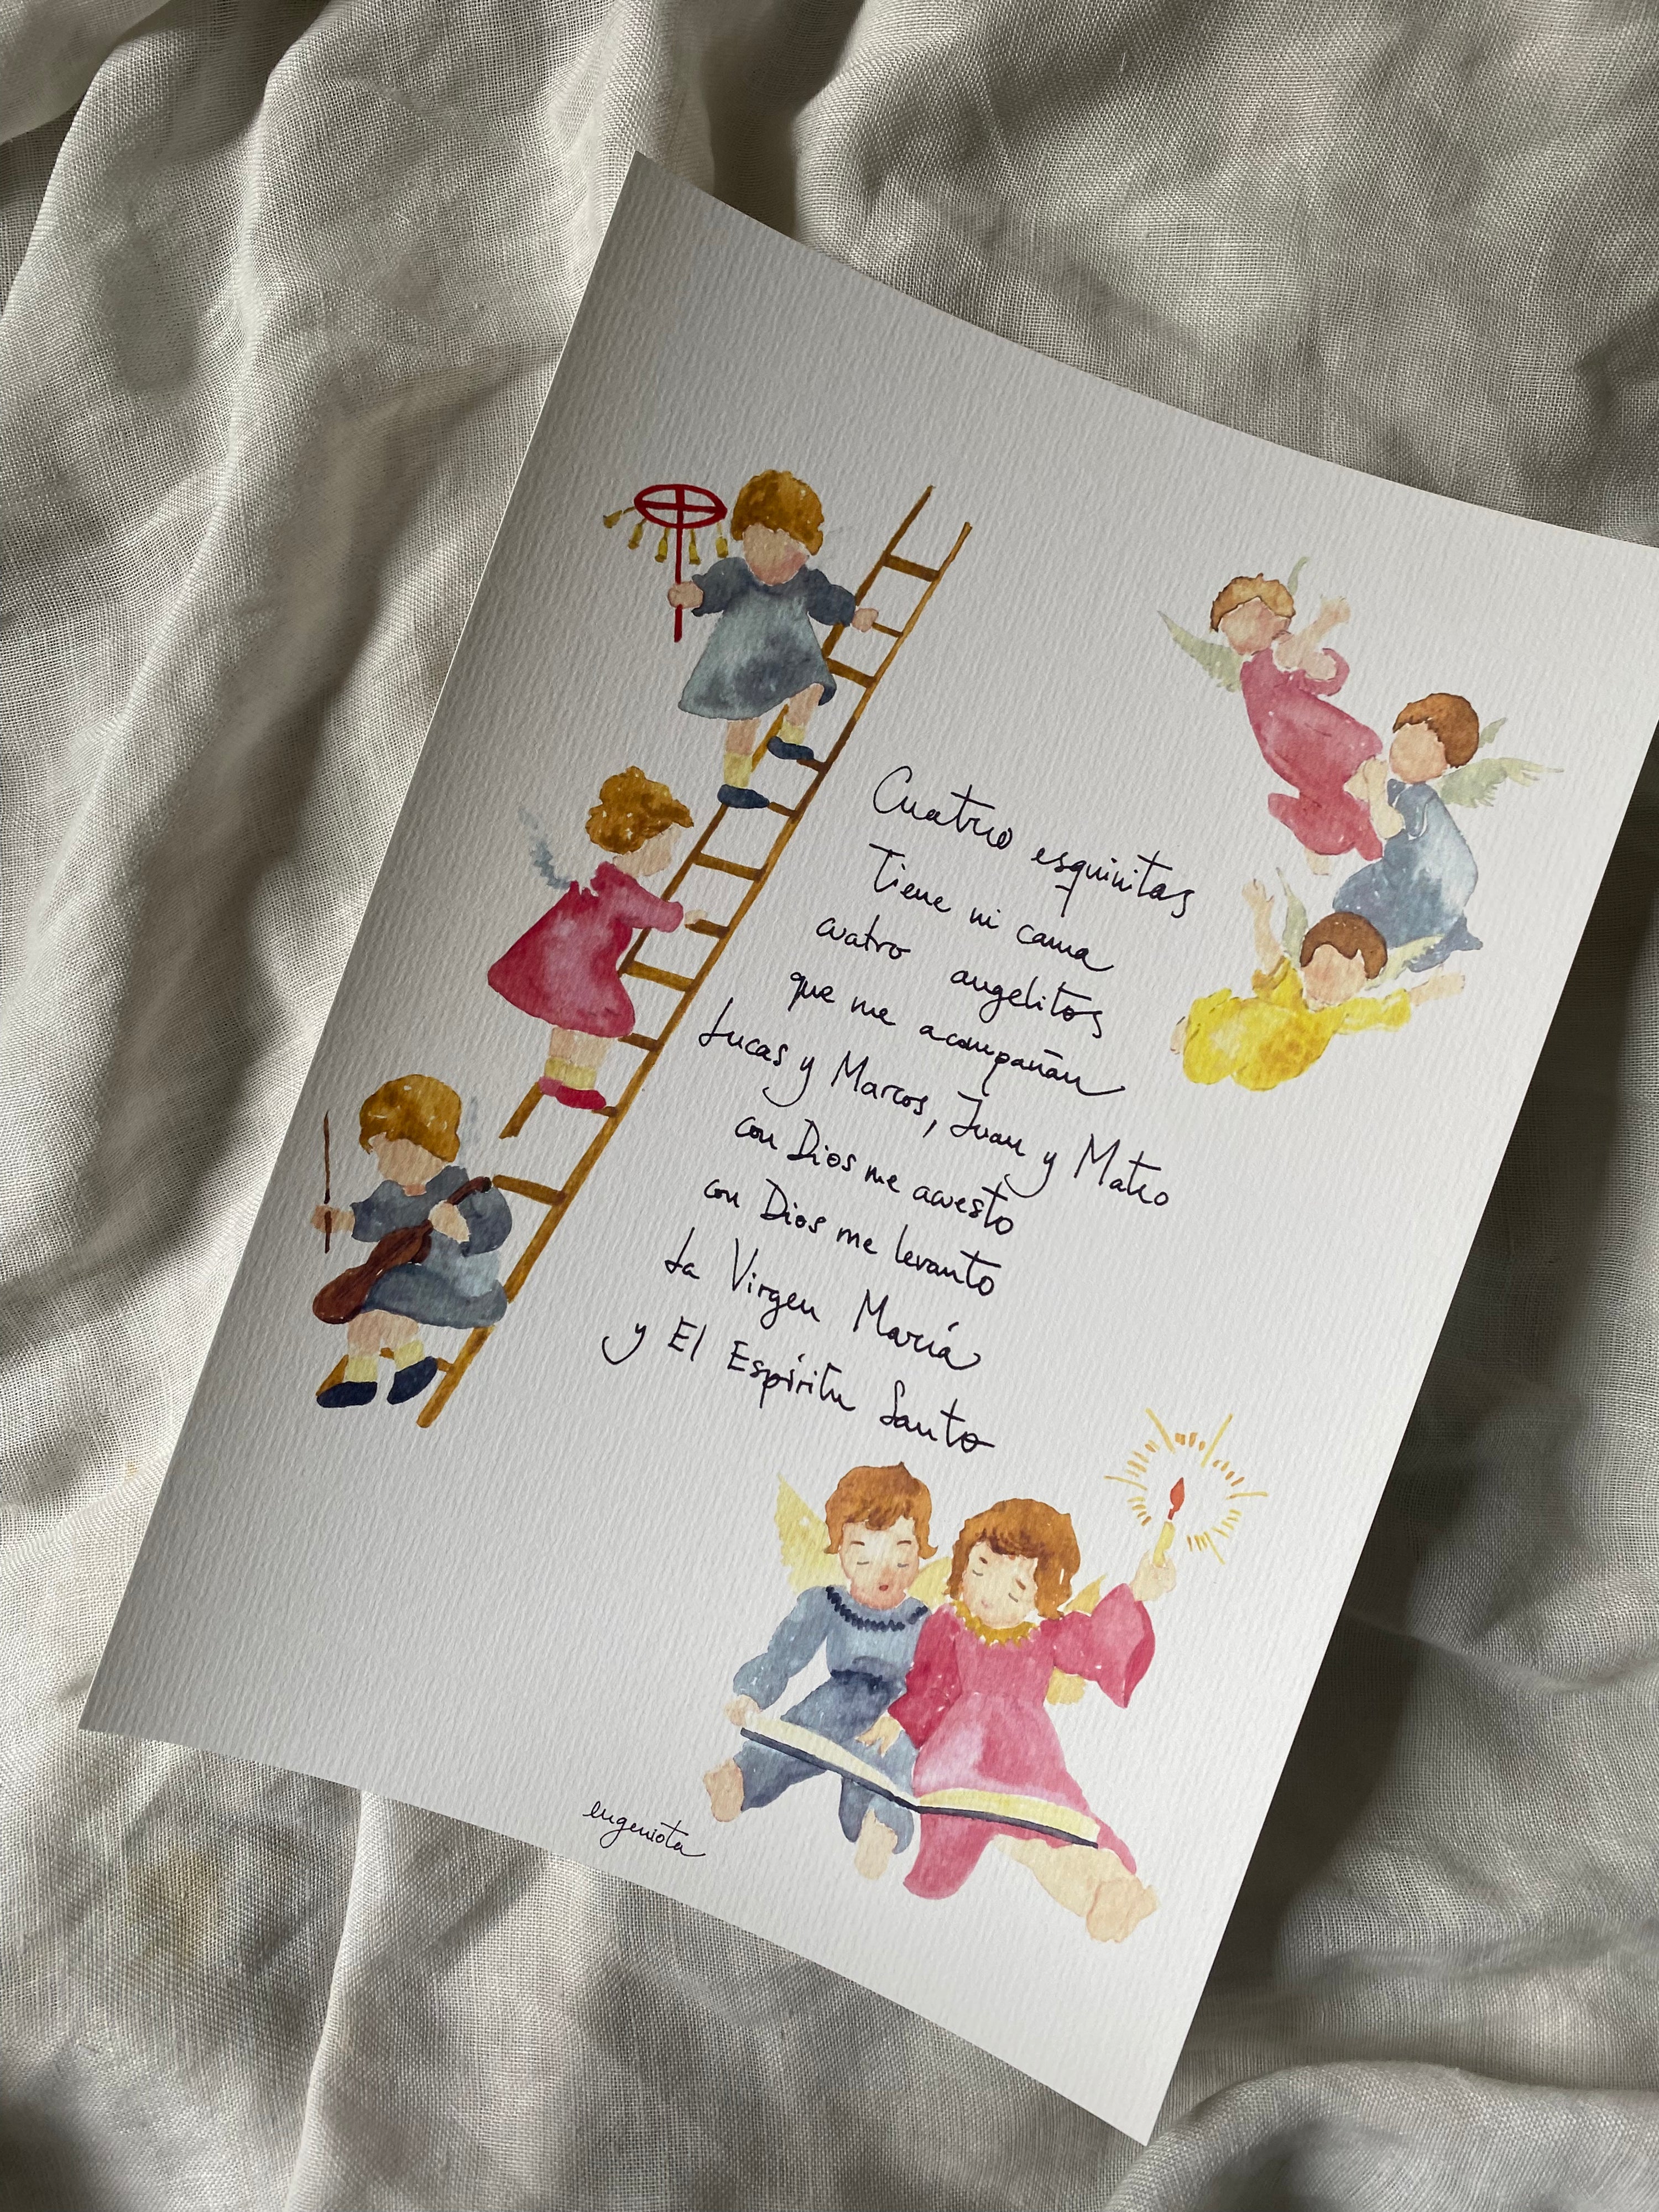 Cuatro esquinitas
Tiene mi cama
cuatro angelitos
que me acompañan
Lucas y Marcos, Juan y Mateo
con Dios me acuesto
con Dios me levanto
La Virgen María
y El Espíritu Santo
eugeniota